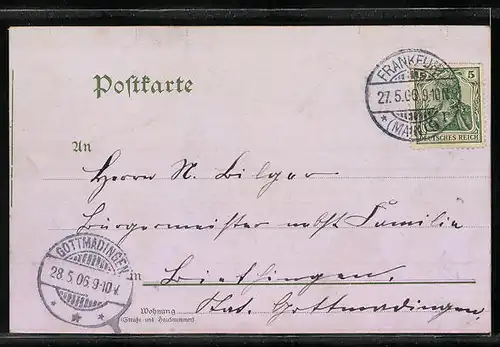 Postkarte
FRANKFURT
27.5.06.9-10N.
* (MAIN)
5
DEUTSCHES REICH
An
Herrn N. Bilger
Bürgermeister nebst Familie
in Biethingen.
Wohnung
(Straße und Hausnummer)
Stat. Gottmadingen.
GOTTMADINGEN
28.5.06.9-10V.
* * *